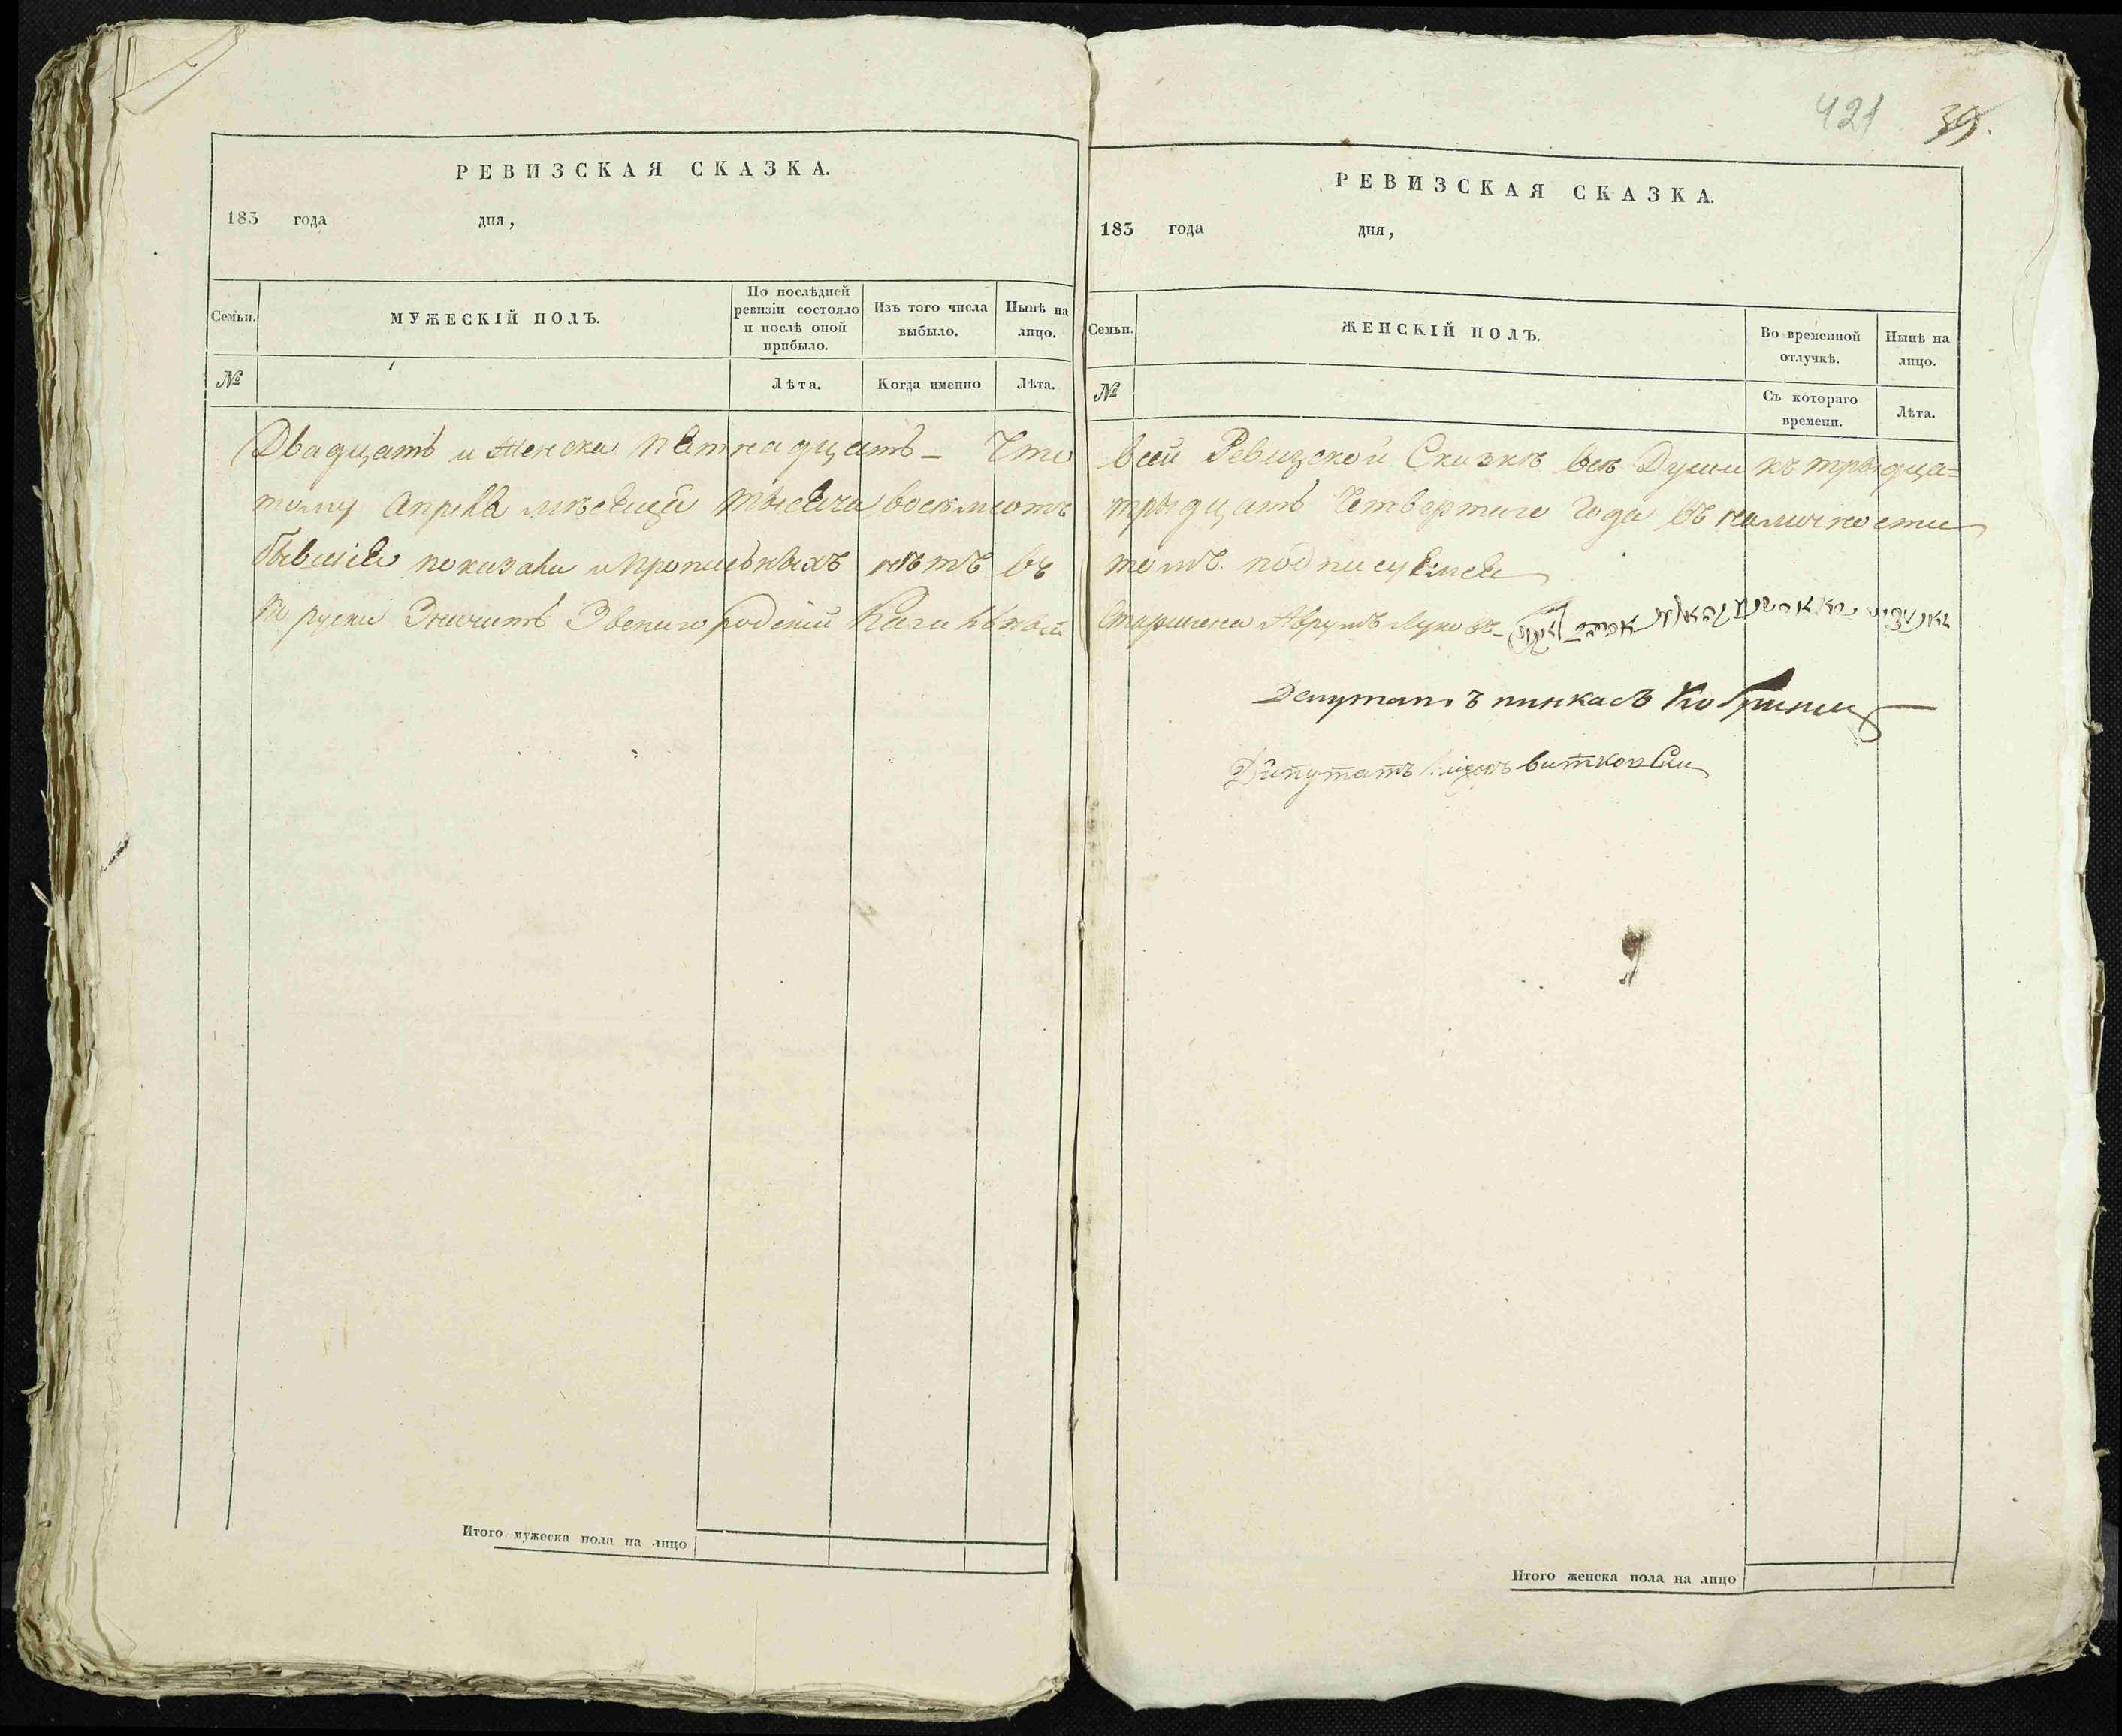 421 39.
РЕВИЗСКАЯ СКАЗКА.
183 года дня,
Семьи.
МУЖЕСКІЙ ПОЛЪ.
По послѣдней ревизіи состояло и послѣ оной прибыло.
Изъ того числа выбыло.
Нынѣ на лицо.
№
Лѣта.
Когда именно
Лѣта.
РЕВИЗСКАЯ СКАЗКА.
183 года дня,
Семьи.
ЖЕНСКІЙ ПОЛЪ.
Во временной отлучкѣ.
Нынѣ на лицо.
№
Съ котораго времени.
Лѣта.
Двадцать и женска петнадцать – Что всей Ревизской Сказкѣ всѣ Души къ трыдца=
тому апреля мѣсяца тысяча восемсотъ трыдцать Четвертаго Года въ наличности
бывшіе показани и прописныхъ нѣтъ въ томъ подписуемся
По руски Значитъ Звенигородскій Кагальный Старшина
Депутатъ пинкасъ
Депутатъ витковски
Итого мужеска пола на лицо
Итого женска пола на лицо